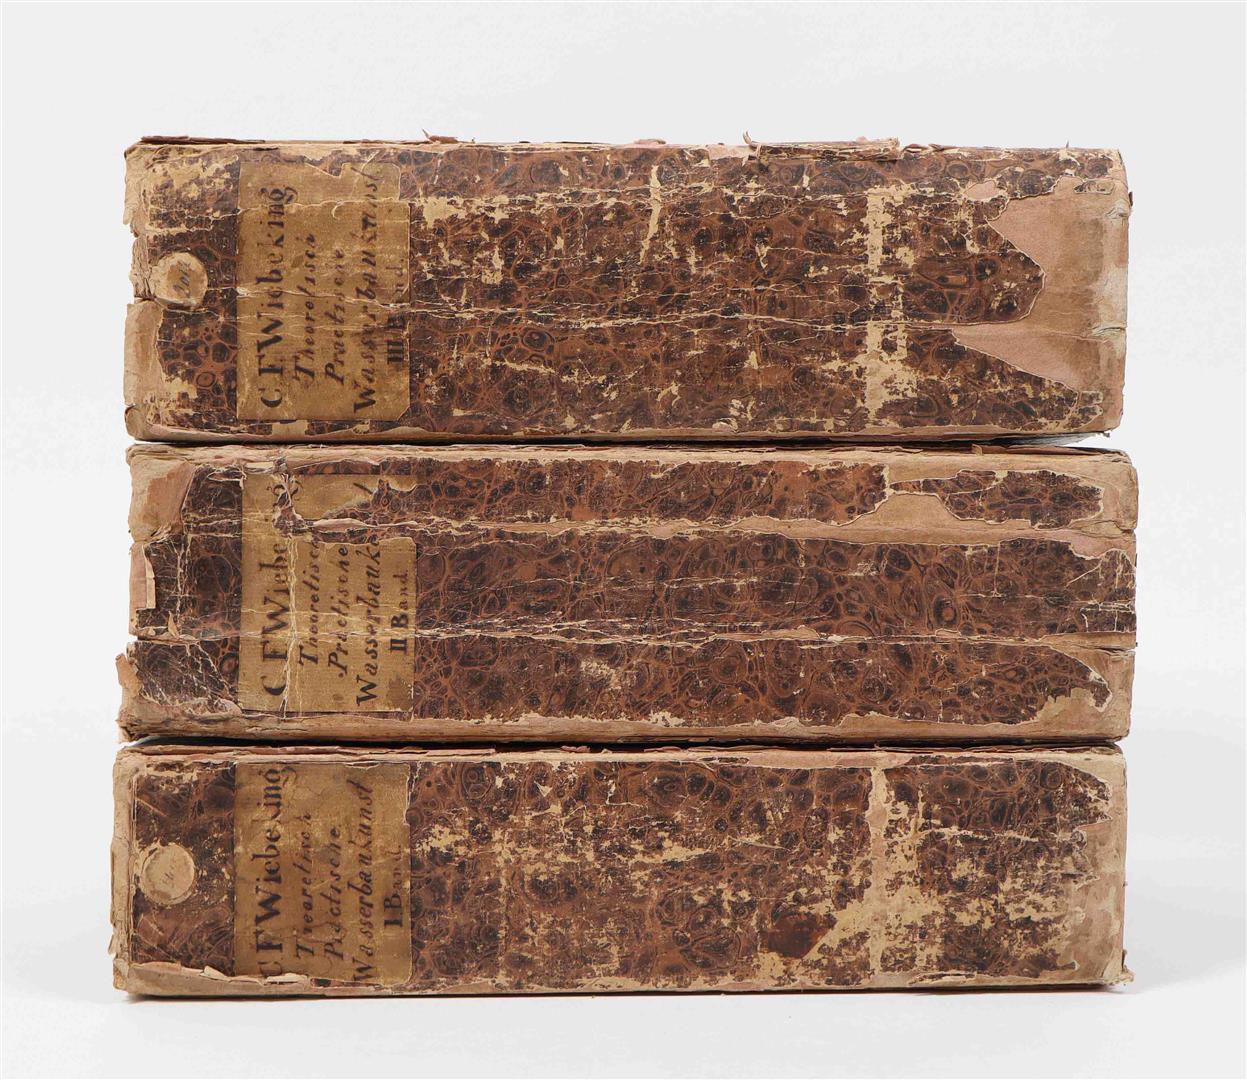 C. F Wiebeking
Theoretisch
Practische
Wasserbaukunst
III B d.
C. F Wiebe
Theoretisch
Practische
Wasserbauk
II Band.
FWiebeking
Theoretisch
Practische
Wasserbaukunst
I Ban